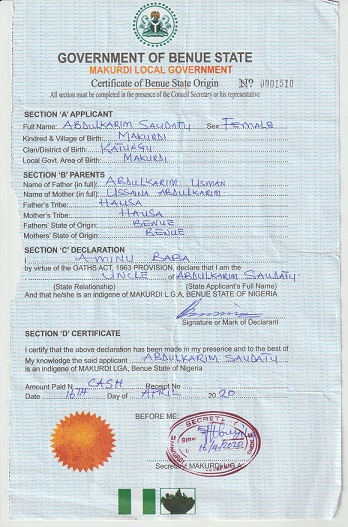 GOVERNMENT OF BENUE STATE
MAKURDI LOCAL GOVERNMENT
Certificate of Benue State Origin Nº 0001510
All section must be completed in the presence of the Council Secretary or his representative
SECTION 'A' APPLICANT
Full Name: ABDULKARIM SAUDATU Sex FEMALE
Kindred & Village of Birth: MAKURDI
Clan/District of Birth: KATUNGU
Local Govt. Area of Birth: MAKURDI
SECTION 'B' PARENTS
Name of Father (in full): ABDULKARIM USMAN
Name of Mother (in full): USSAINA ABDULKARIM
Father's Tribe: HAUSA
Mother's Tribe: HAUSA
Fathers' State of Origin: BENUE
Mothers' State of Origin: BENUE
SECTION 'C' DECLARATION
I AMINU BABA
by virtue of the OATHS ACT, 1963 PROVISION, declare that I am the
UNCLE of ABDULKARIM SAUDATU
(State Relationship) (State Applicant's Full Name)
And that he/she is an indigene of MAKURDI L.G.A, BENUE STATE OF NIGERIA
Signature or Mark of Declarant
SECTION 'D' CERTIFICATE
I certify that the above declaration has been made in my presence and to the best of
My knowledge the said applicant ABDULKARIM SAUDATU
is an indigene of MAKURDI LGA, Benue State of Nigeria
Amount Paid N CASH Receipt No
Date 16TH Day of APRIL 2020
BEFORE ME:
SECRETARY
16/4/2020
Secretary MAKURDI L.G.A